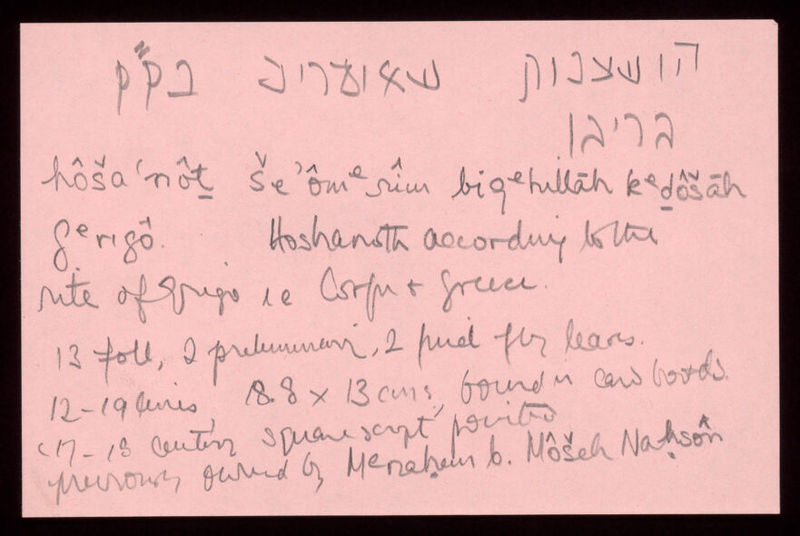 הושענות שאומרים בק״ק
גריגו
hôša'nôṯ še'ômᵉrîm biqᵉhillāh kᵉḏôšāh
gᵉrigô. Hoshanoth according to the
rite of Grigo ie Corfu + Greece.
13 foll, 2 preliminary, 2 final fly leaves.
12-19 lines, 18.8 x 13 cms, bound in card boards.
c17-18 century square script, pointed
previously owned by Mᵉnaḥem b. Môšeh Naḥsôn